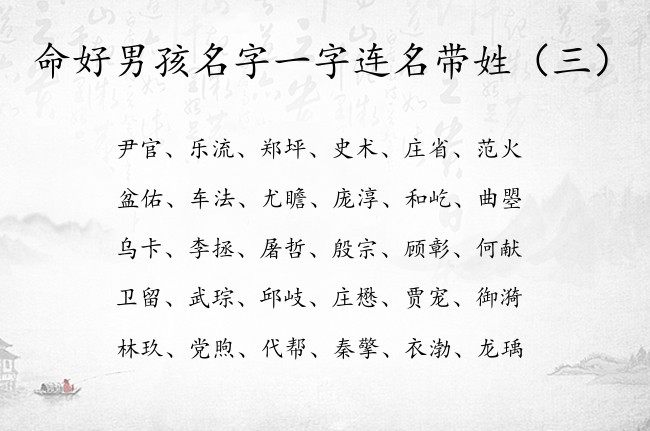 命好男孩名字一字连名带姓（三）
尹官、乐流、郑坪、史术、庄省、范火
盆佑、车法、尤瞻、庞淳、和屹、曲曌
乌卡、李拯、屠哲、殷宗、顾彰、何献
卫留、武琮、邱岐、庄懋、贾宠、御漪
林玖、党煦、代帮、秦擎、衣渤、龙瑀